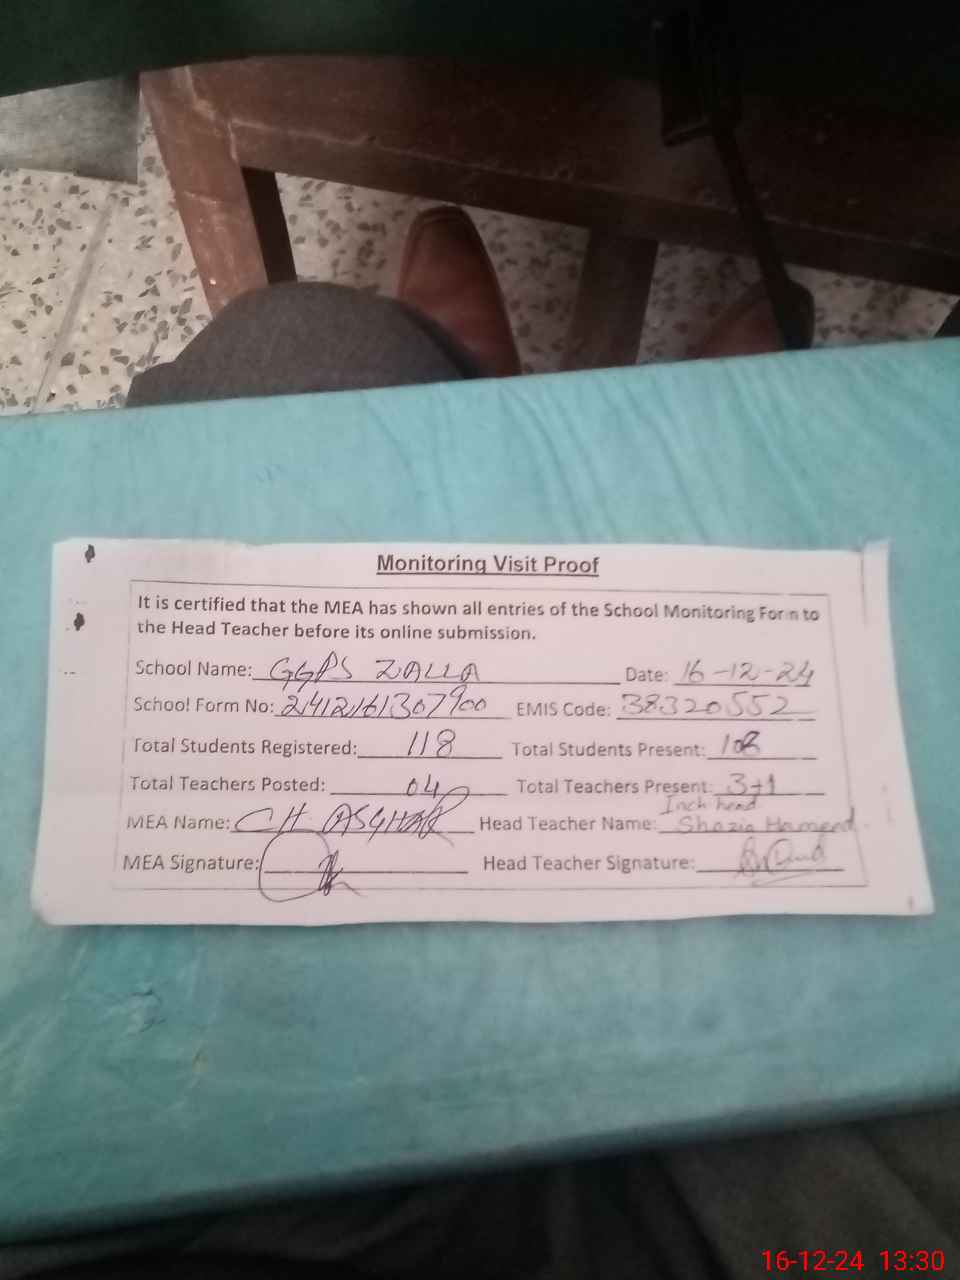 Monitoring Visit Proof
It is certified that the MEA has shown all entries of the School Monitoring Form to
the Head Teacher before its online submission.
School Name: GGPS ZALLA Date: 16-12-24
School Form No: 2412161307900 EMIS Code: 38320552
Total Students Registered: 118 Total Students Present: 108
Total Teachers Posted: 04 Total Teachers Present: 3+1
Inch head
MEA Name: CH ASGHAR Head Teacher Name: Shazia Hameed
MEA Signature: Head Teacher Signature:
16-12-24 13:30